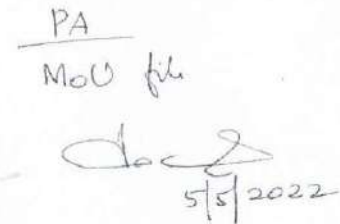 PA
MoU file
5/5/2022